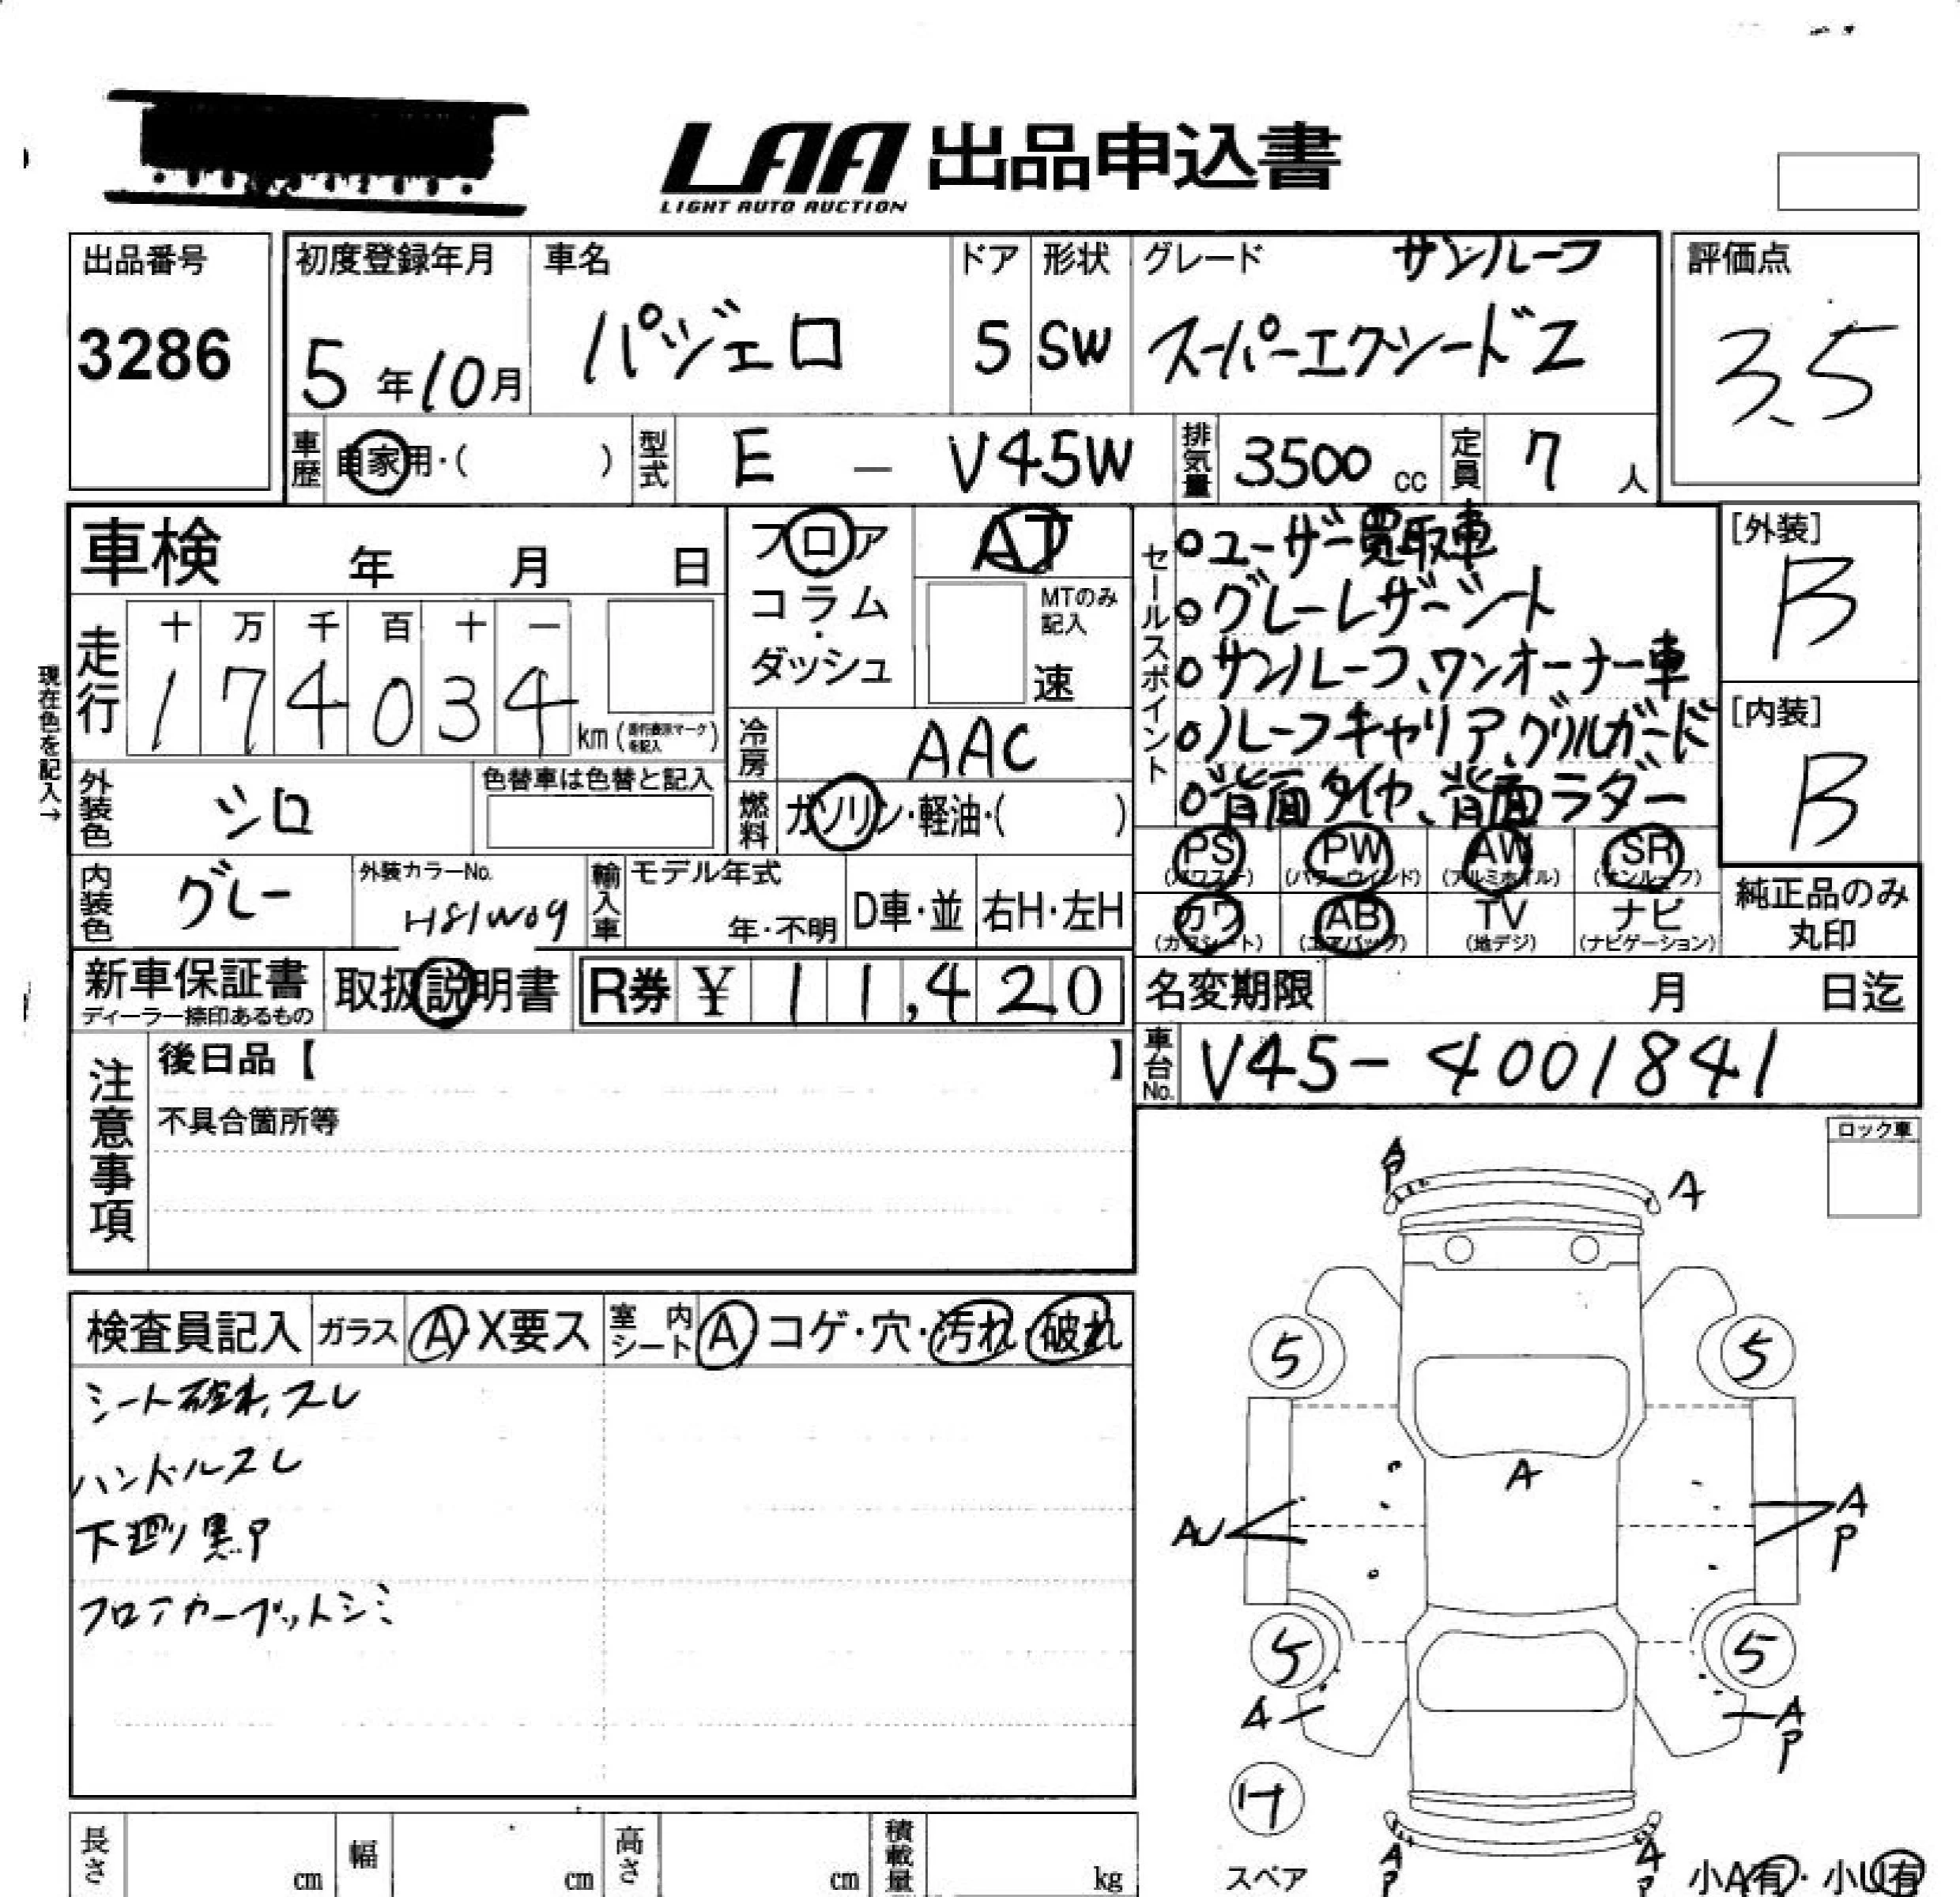 LAA 出品申込書
LIGHT AUTO AUCTION
出品番号
3286
初度登録年月
5年10月
車名
パジェロ
ドア
5
形状
SW
グレード サンルーフ
スーパーエクシードZ
評価点
3.5
車歴 自家用・( )
型式 E - V45W
排気量 3500 cc
定員 7 人
車検 年 月 日
フロア
コラム
・
ダッシュ
AT
MTのみ
記入
速
セールスポイント
○ユーザー買取車
○グレーレザーシート
○サンルーフ、ワンオーナー車
○ルーフキャリア、グリルガード
○背面タイヤ、背面ラダー
[外装]
B
[内装]
B
現在色を記入→
走行
十 万 千 百 十 一
1 7 4 0 3 4 km
冷房 AAC
燃料 ガソリン・軽油・( )
外装色 シロ
色替車は色替と記入
内装色 グレー
外装カラーNo.
H81W09
輸入車
モデル年式
年・不明
D車・並
右H・左H
PS PW AW SR
(パワステ) (パワーウインド) (アルミホイル) (サンルーフ)
カワ AB TV ナビ
(カワシート) (エアバッグ) (地デジ) (ナビゲーション)
純正品のみ
丸印
新車保証書
ディーラー捺印あるもの
取扱説明書
R券 ¥ 11,420
名変期限 月 日迄
車台No. V45-4001841
注意事項
後日品【 】
不具合箇所等
ロック車
検査員記入
ガラス A・X要ス
室内シート A コゲ・穴・汚れ・破れ
シート破れ、スレ
ハンドルスレ
下廻り黒P
フロアカーペットシミ
A
P
A
5
5
A
AU
A
P
5
5
A
A
P
スペア
A
P
A
P
小A有・小U有
長さ cm
幅 cm
高さ cm
積載量 kg